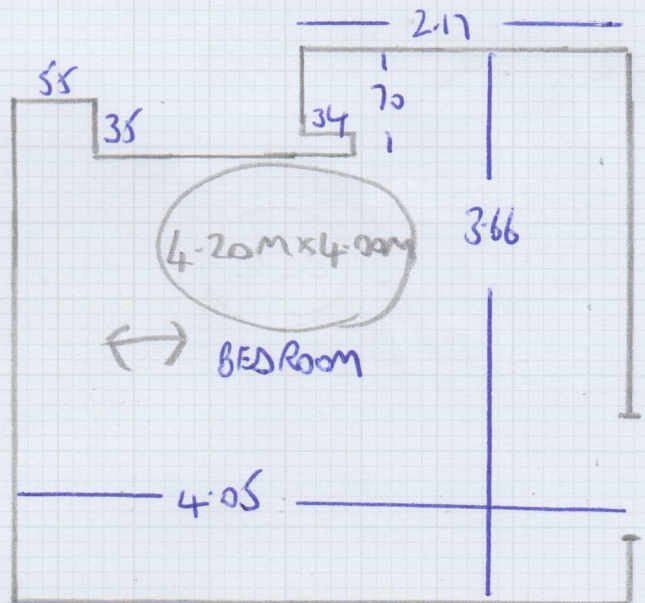 2.17
55
70
35
34
4.20M x 4.00M
3.66
BEDROOM
4.05